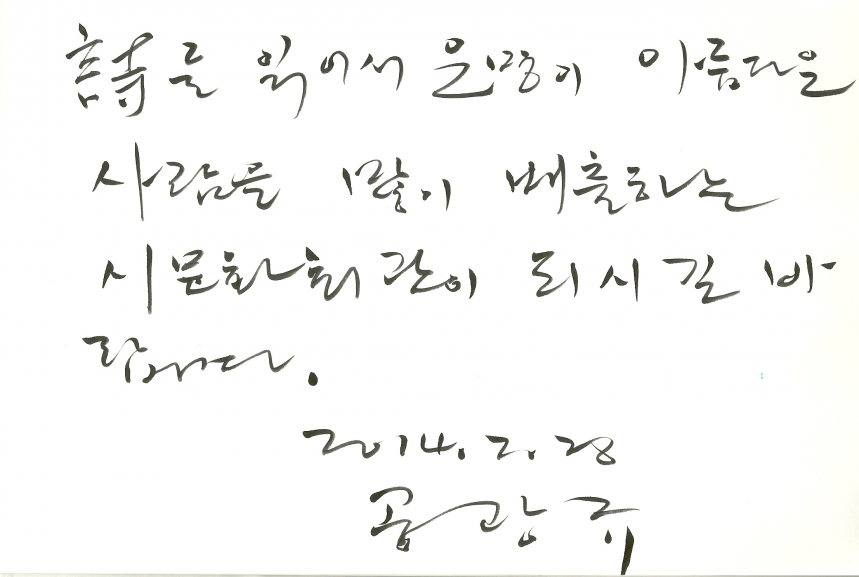 詩를 읽어서 운명이 아름다운
사람을 많이 배출하는
시문화회관이 되시길 바
랍니다.
2014. 2. 28
공광규